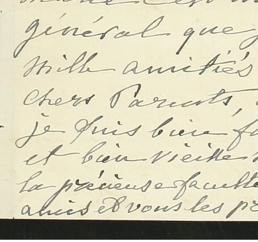 général que
mille amitiés
chers Parents,
je suis bien
et bien vieille
la précieuse faculté
amis et vous les